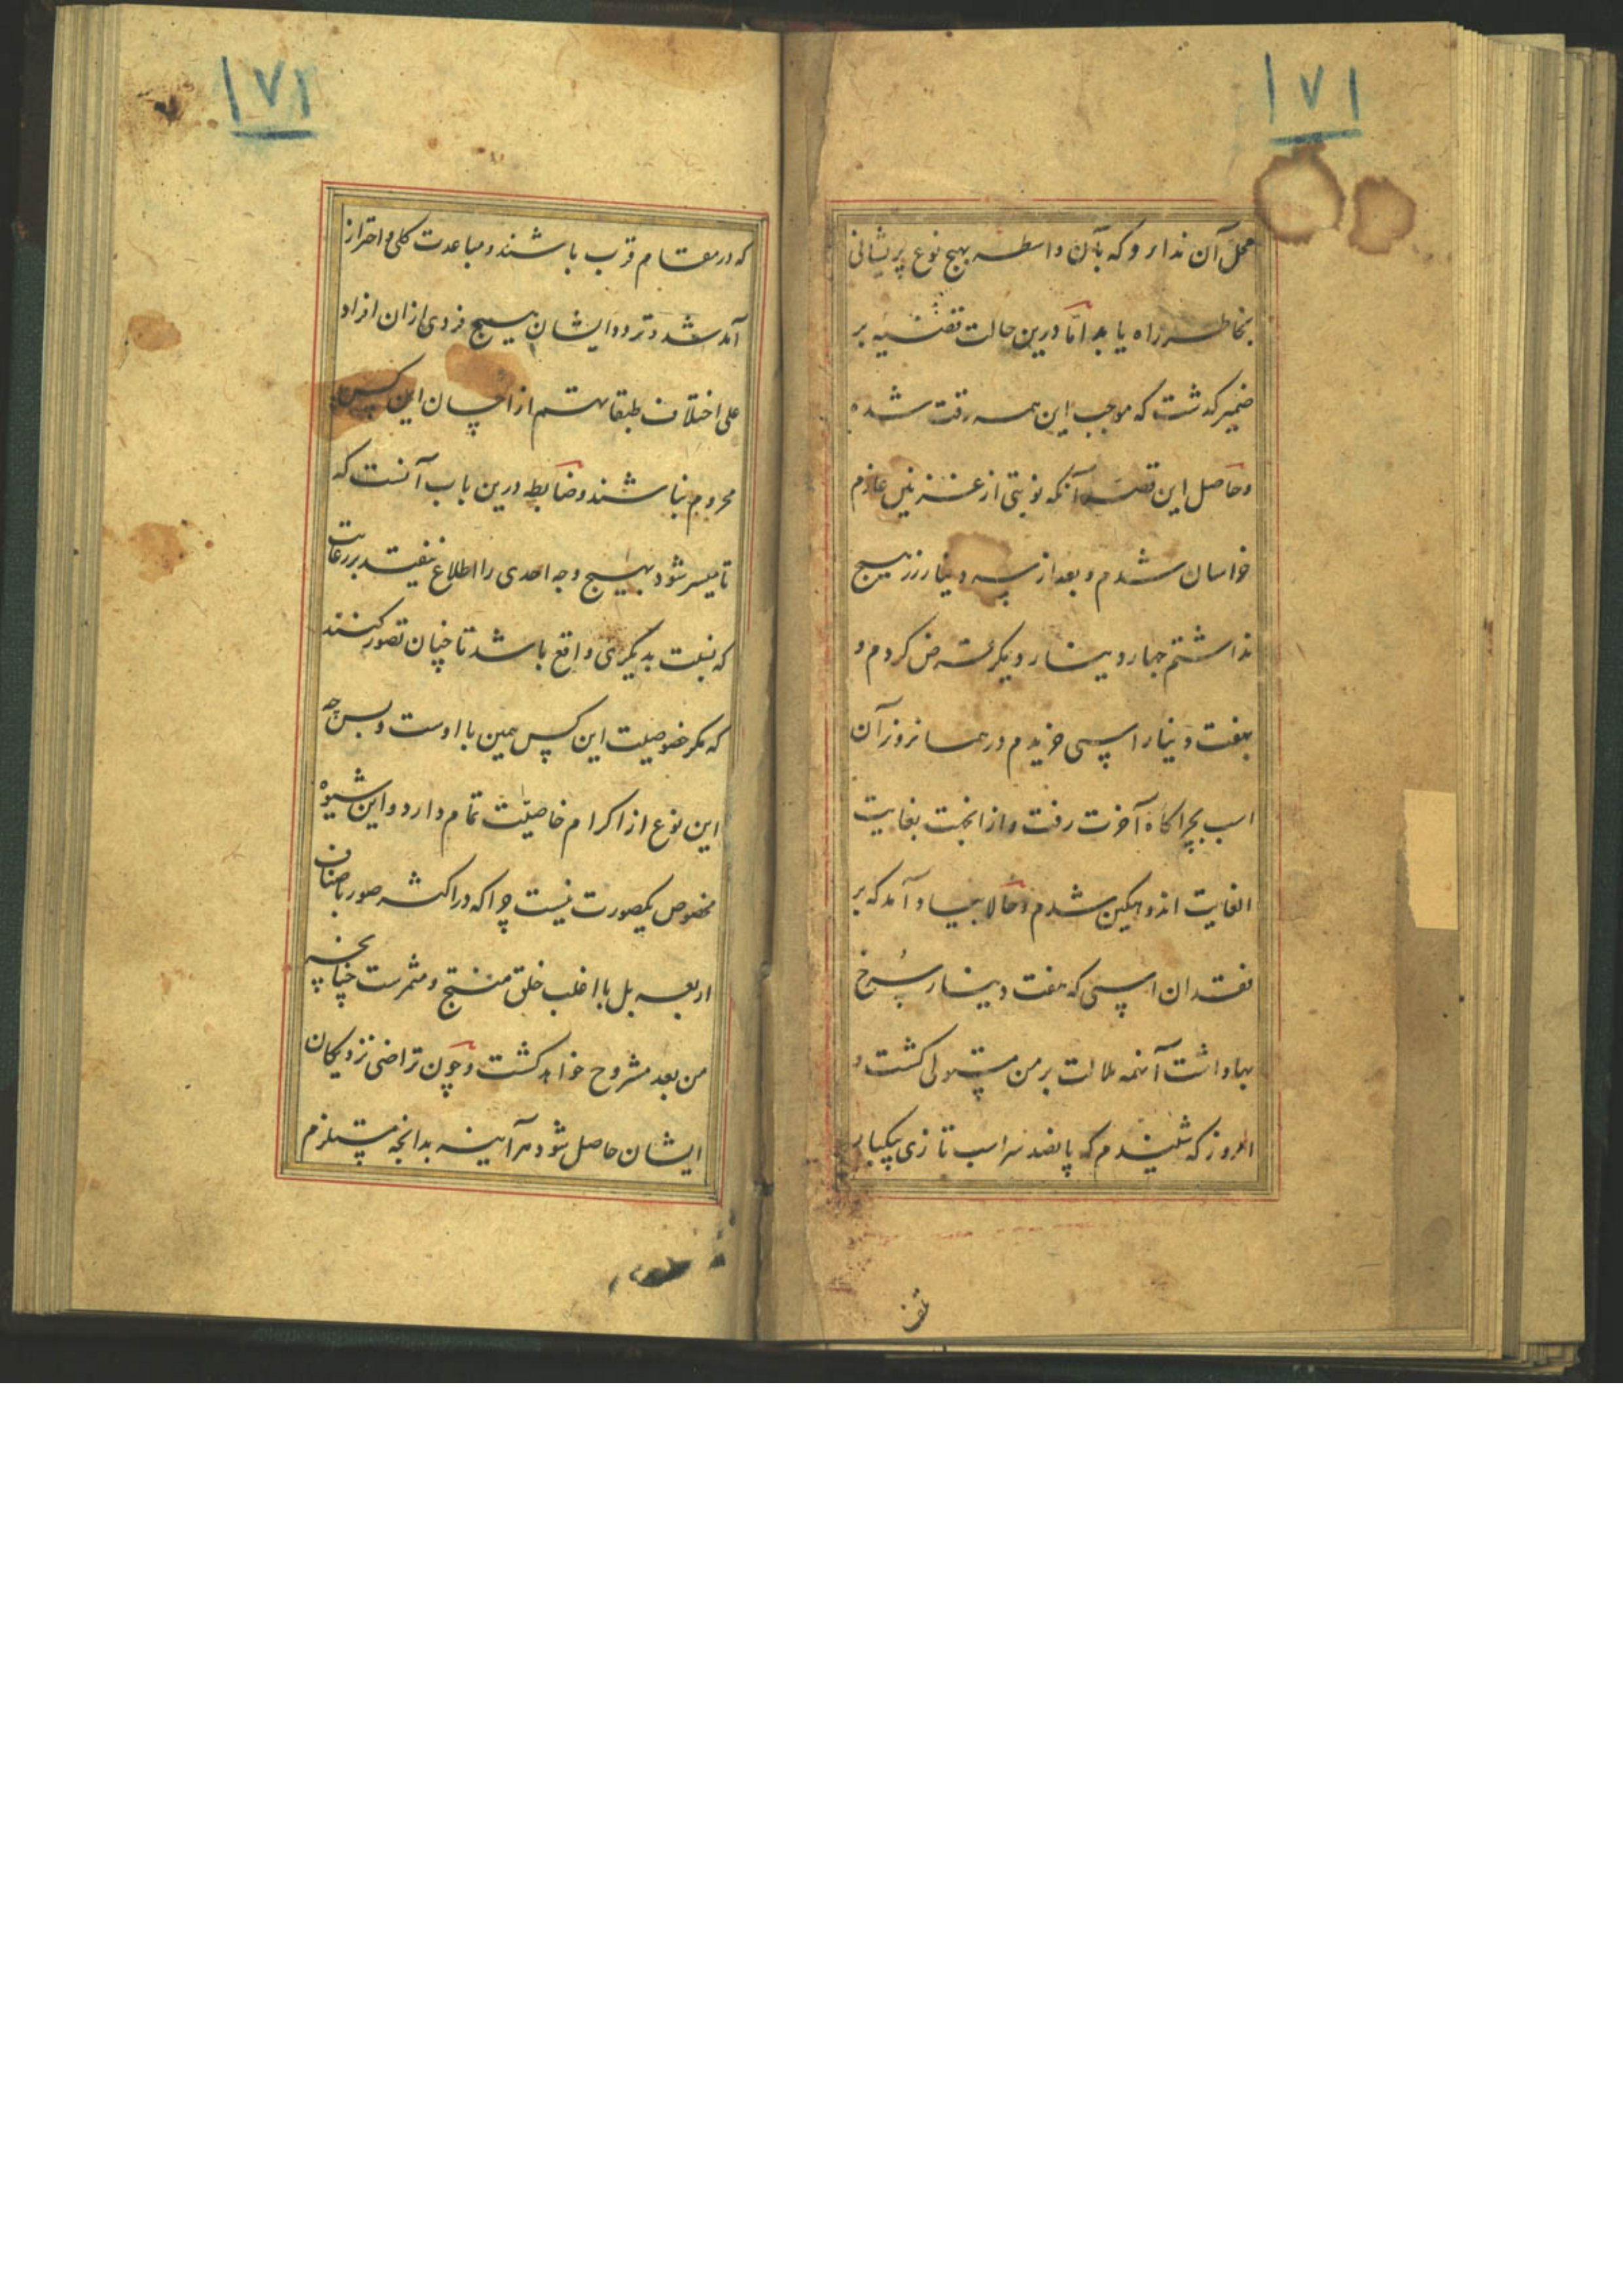 ۱۷۱
محل آن ندارد که بآن واسطه بهیچ نوع پریشانی
بخاطر راه یابد اما درین حالت قضیه بر
ضمیر کذشت که موجب این همه رقت شده
وحاصل این قصه آنکه نوبتی از غزنین عازم
خراسان شدم و بعد از سه دینار زر هیچ
نداشتم چهار دینار دیکر قرض کردم و
بهفت دینار اسپی خریدم در همانروز آن
اسب بچراکاه آخرت رفت و از انجهت بغایت
الغایت اندوهکین شدم و حالا بیاد آمد که بر
فقدان اسپی که هفت دینار سرخ
بها داشت آنهمه ملالت بر من مستولی کشت و
امروز که شنیدم که پانصد سر اسب تازی بیکبار
تلف
۱۷۲
که در مقام قرب باشند و مباعدت کلی و احتراز
آمد شد و تردد ایشان هیچ فردی ازان افراد
علی اختلاف طبقاتهم از احسان این کس
محروم نباشند و ضابطه درین باب آنست که
تا میسر شود بهیچ وجه احدی را اطلاع نیفتد بر رعایت
که نسبت بدیکری واقع باشد تا چنان تصور کنند
که مکر خصوصیت این کس همین با اوست و بس چه
این نوع از اکرام خاصیت تمام دارد و این شیوه
مخصوص یکصورت نیست چرا که در اکثر صور با صنف
اربعه بل با اغلب خلق منتج و مثمرست چنانچه
من بعد مشروح خواهد کشت و چون تراضی نزدیکان
ایشان حاصل شود هر آینه بدانچه مستلزم